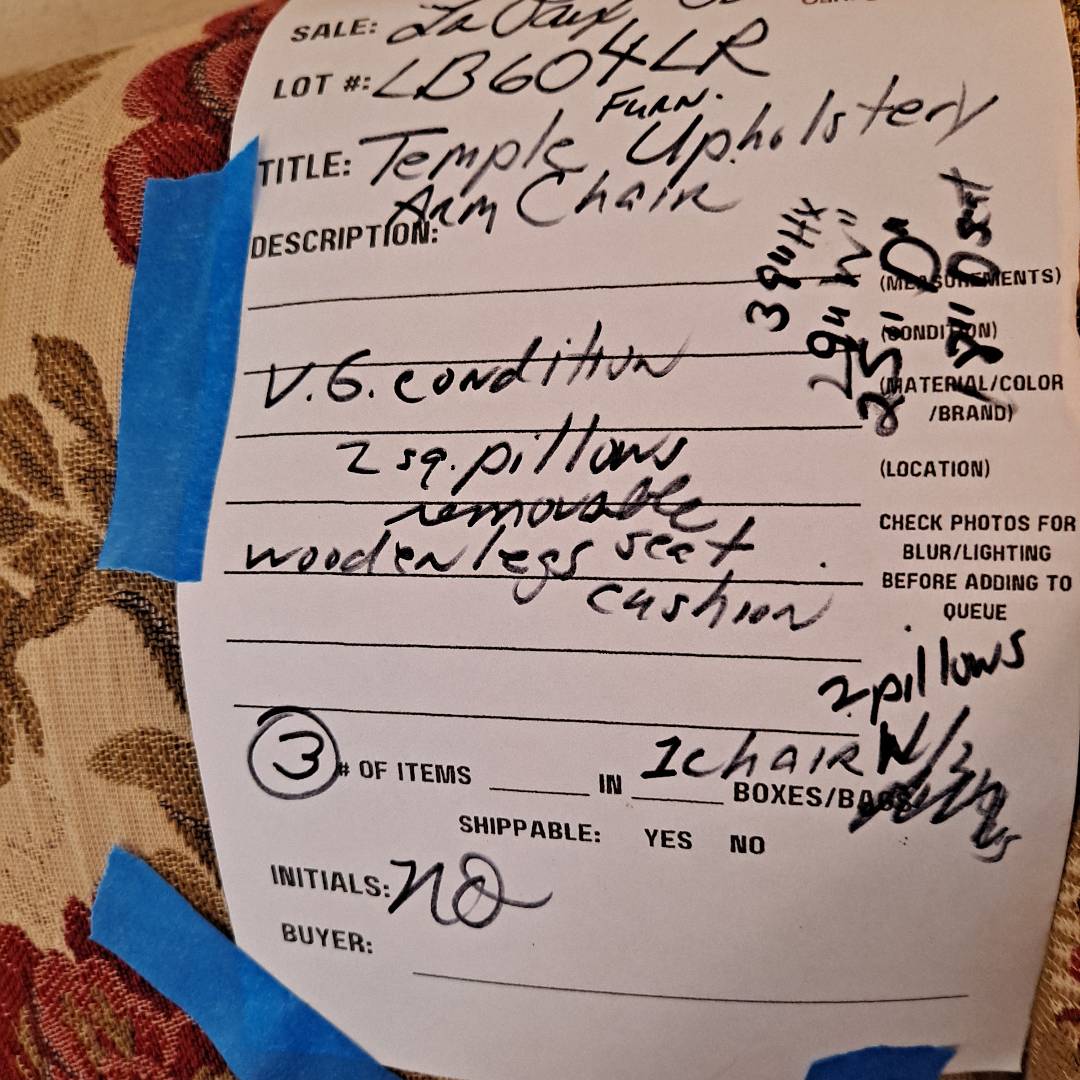 SALE: La
LOT #: LB604LR
FURN.
TITLE: Temple Upholstery
Arm Chair
DESCRIPTION:
39"Hx
29"W"
25"D"
(MEASUREMENTS)
(CONDITION)
V.G. condition
(MATERIAL/COLOR
/BRAND)
2 sq. pillows
(LOCATION)
removable
wooden legs seat
cushion
CHECK PHOTOS FOR
BLUR/LIGHTING
BEFORE ADDING TO
QUEUE
2 pillows
1 chair W/
3 # OF ITEMS ______ IN ______ BOXES/BAGS
SHIPPABLE: YES NO
INITIALS: NO
BUYER: